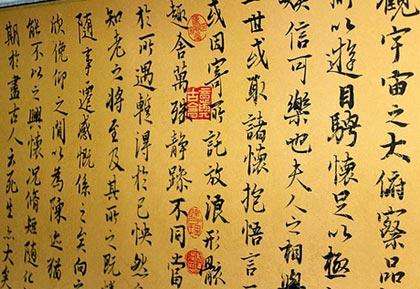 觀宇宙之大俯察品
所以遊目騁懷足以極
娛信可樂也夫人之相與
一世或取諸懷抱悟言一
或因寄所託放浪形骸
趣舍萬殊靜躁不同當
於所遇蹔得於己怏然
知老之將至及其所之既
隨事遷感慨係之矣向之
欣俛仰之間以為陳迹猶
能不以之興懷況脩短隨化
期於盡古人云死生亦大矣